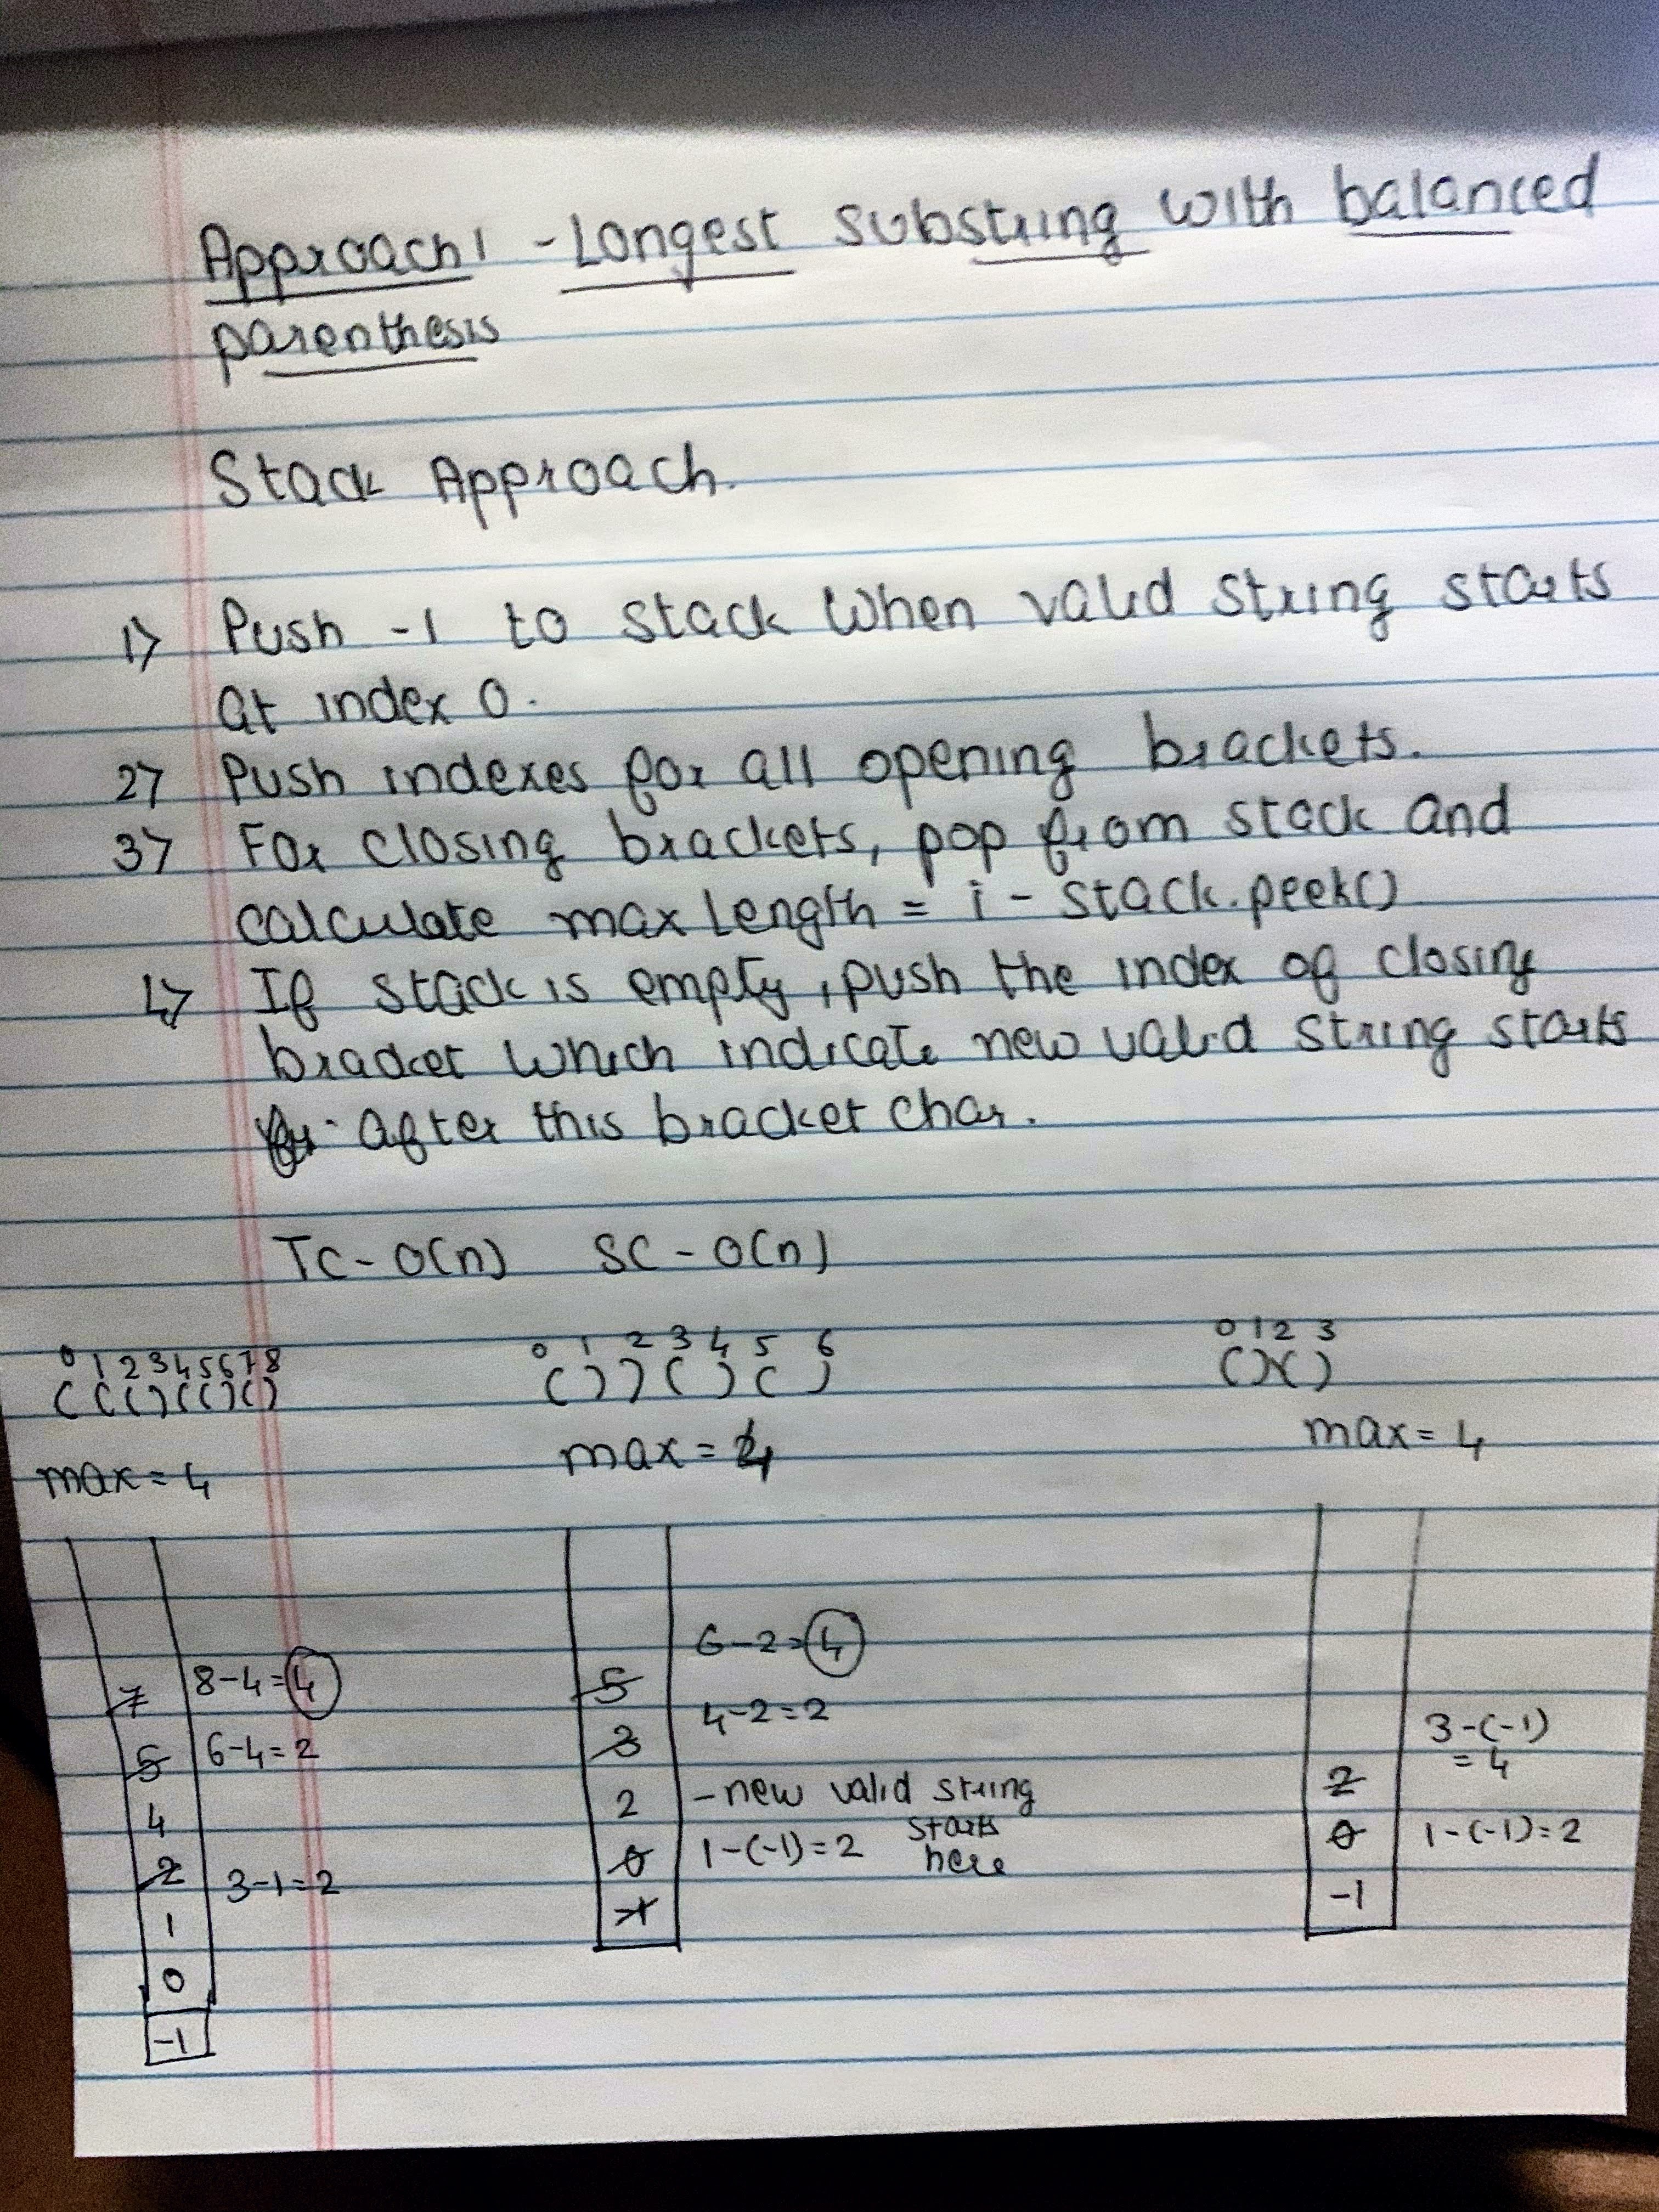 Approach 1 - Longest substring with balanced
parenthesis
Stack Approach.
1) Push -1 to stack when valid string starts
at index 0.
2) Push indexes for all opening brackets.
3) For closing brackets, pop from stack and
calculate max length = i - stack.peek()
4) If stack is empty, push the index of closing
bracket which indicate new valid string starts
after this bracket char.
TC - O(n) SC - O(n)
0 1 2 3 4 5 6 7 8
( ( ( ) ( ( ) ( )
max = 4
7 8-4=4
5 6-4=2
4
2 3-1=2
1
0
-1
0 1 2 3 4 5 6
( ) ) ( ) ( )
max = 4
6-2=4
5
4-2=2
3
2 - new valid string
starts
0 1-(-1)=2 here
-1
0 1 2 3
( ) ( )
max = 4
3-(-1)
= 4
2
0 1-(-1)=2
-1